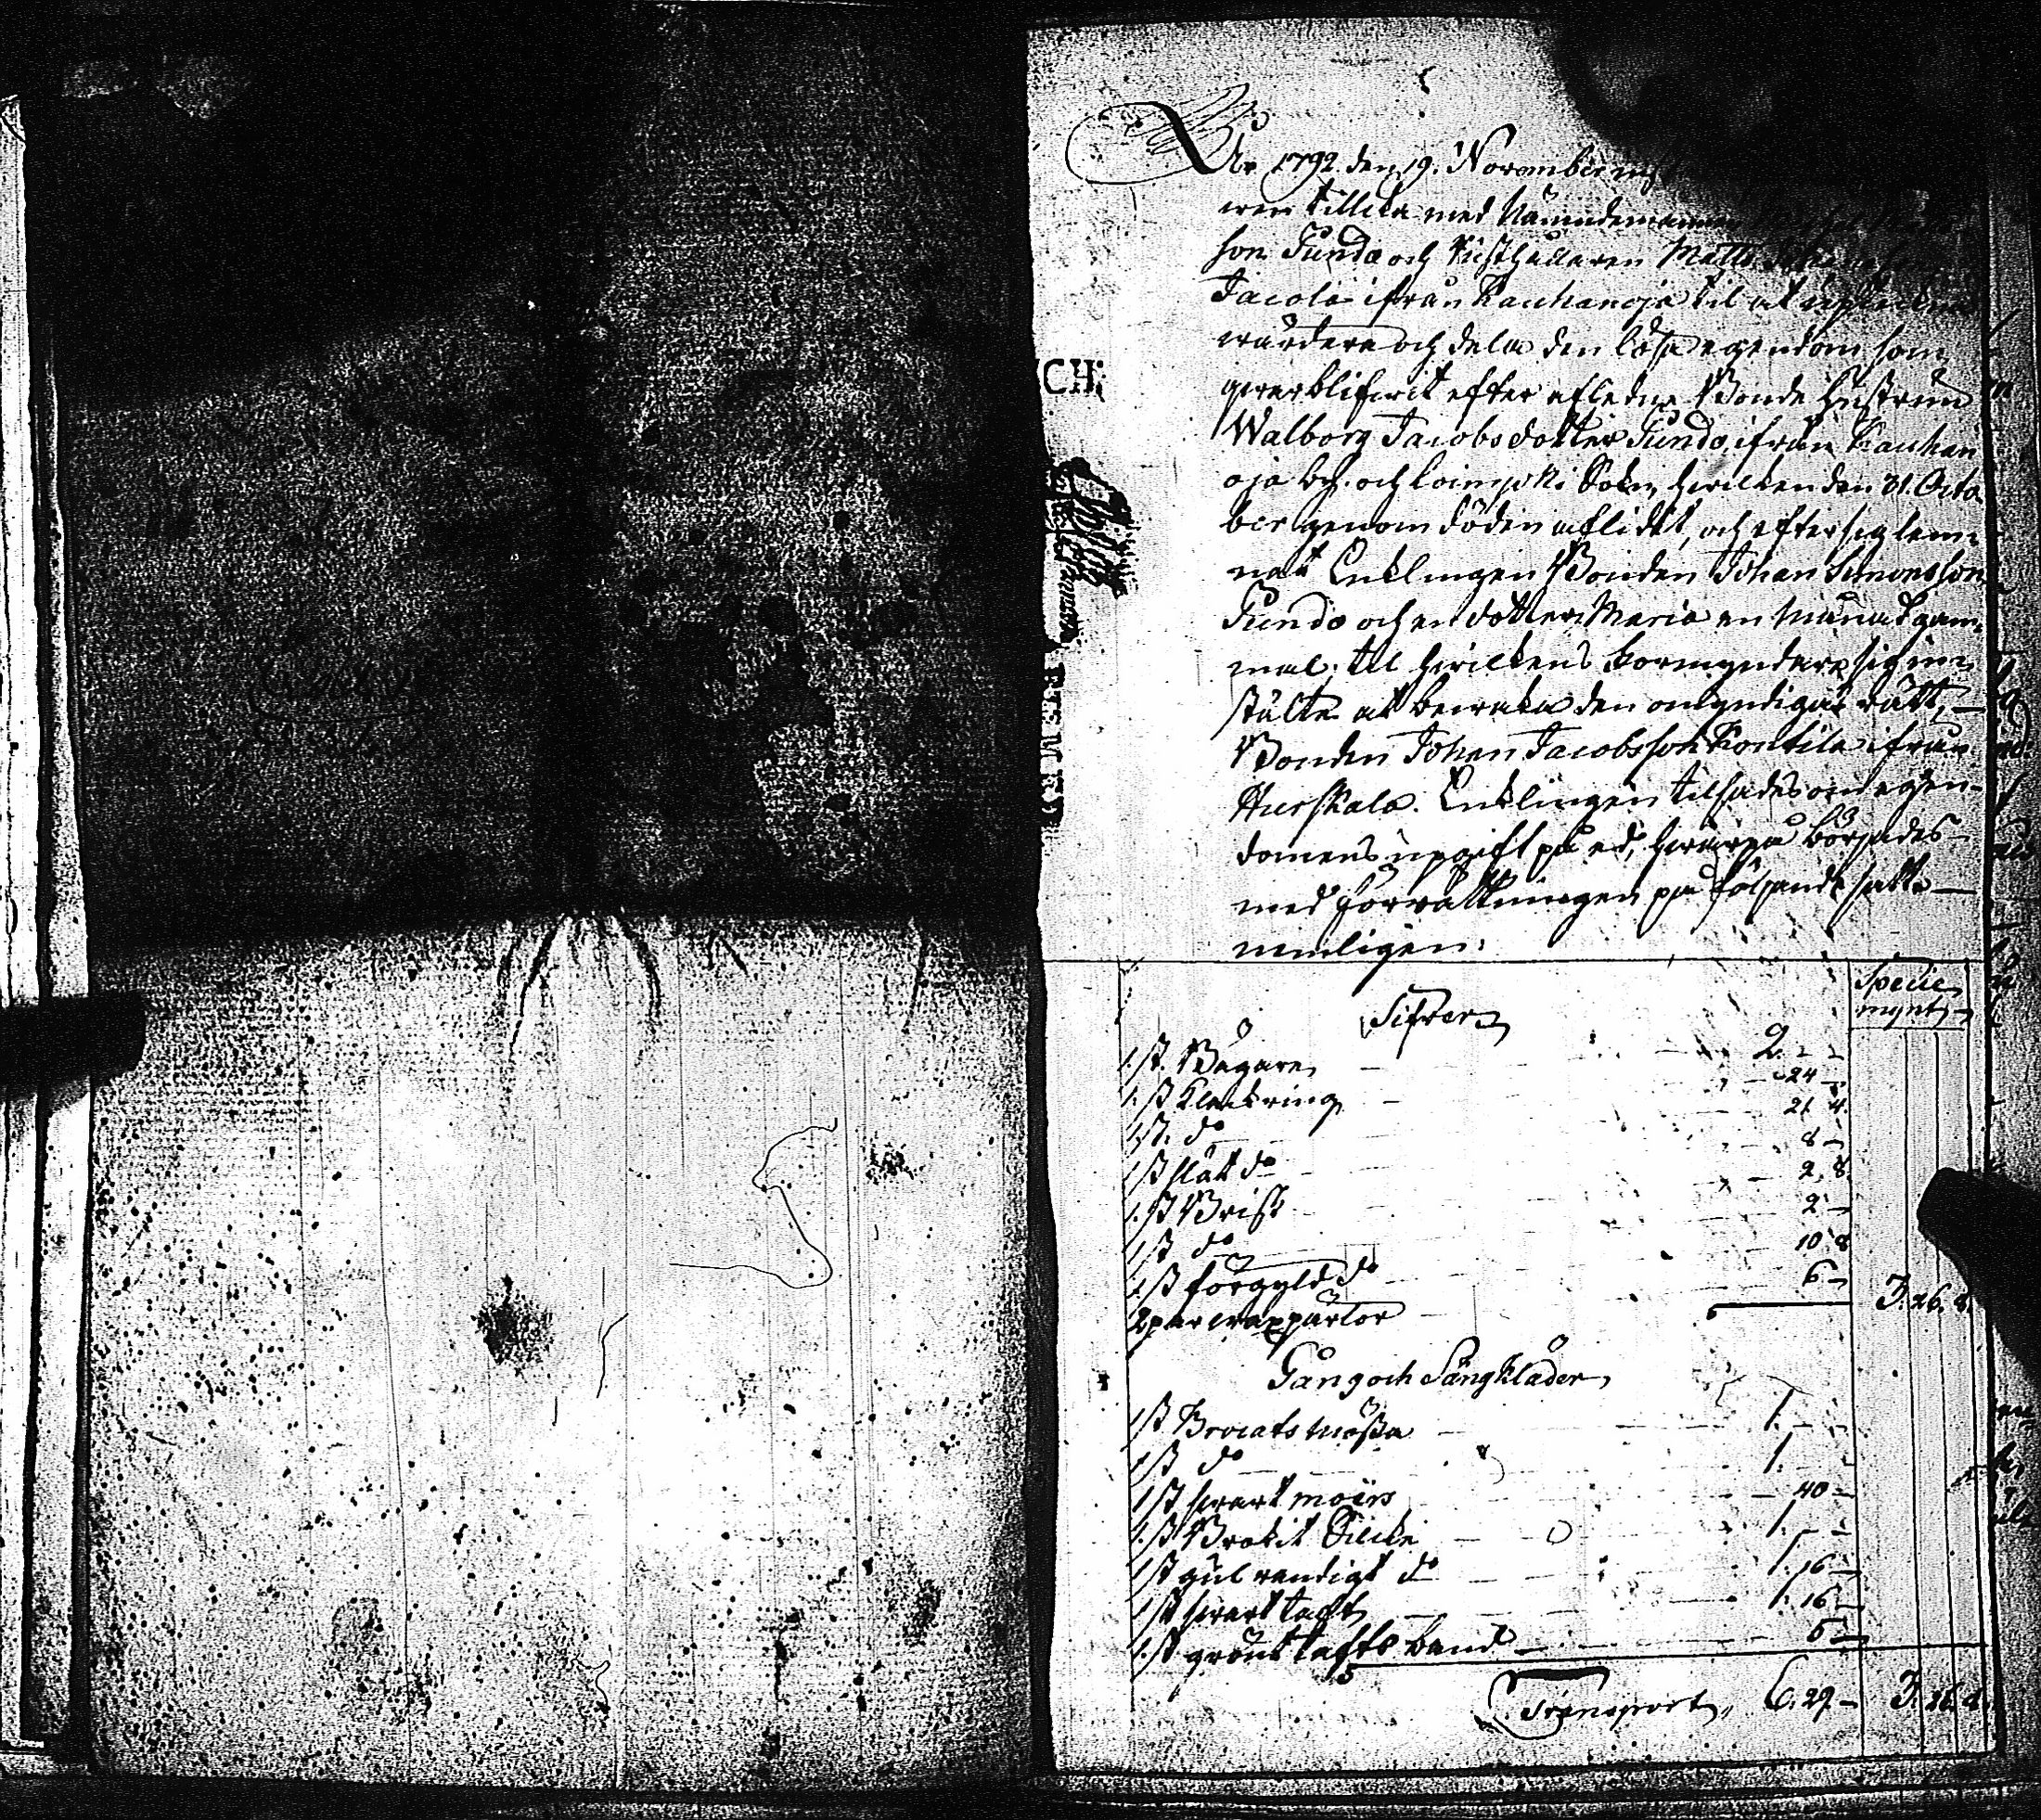 CH:
År 1792 den 19. November
son Fundo och Rusthållaren Matts
Jacola ifrån Kauhanoja til at
wärdera och dela den lösa egendom som
qwarblifwit efter afledne Bonde Hustrun
Walborg Jacobsdotter Fundo, ifrån Kauhan
oja by och Loimjoki Sokn, hwilken den 31. Octo
ber genom döden aflidit, och efter sig lem¬
nat Enklingen Bonden Johan Simonsson
Fundo och en dotter Maria en månad gam¬
mal; til hwilkens Formyndare sig in¬
stälte at bewaka den omyndigas rätt,
Bonden Johan Jacobsson Kontila ifrån
Hurskala. Enklingen tilsades om egen¬
domens upgift på ed, hwarpå börjades
med Förrättningen på följande sätt
nemligen:
Specie
mynt
Silfwer
1. st. Bägare 2. - -
1. st Klackring - 24 -
1. st. do 21. 4.
1 st slät do 8 -
1. st Brisk 2. 8.
1 st do 2 -
1 st förgyld do 10 8
2 par waxpärlor 6 - 3. 26. 8.
Gång och Sängkläder
1 st Brocats mössa 1. - -
1 st do 1. - -
1 st swart moirs - 40 -
1. st Brokit Silcke 1. - -
1 st gul randigt do 1. 16 -
1 st swart taft 1. 16 -
1. st grönt tafts band 5 -
Transport, 6. 29 - 3. 26. 8.